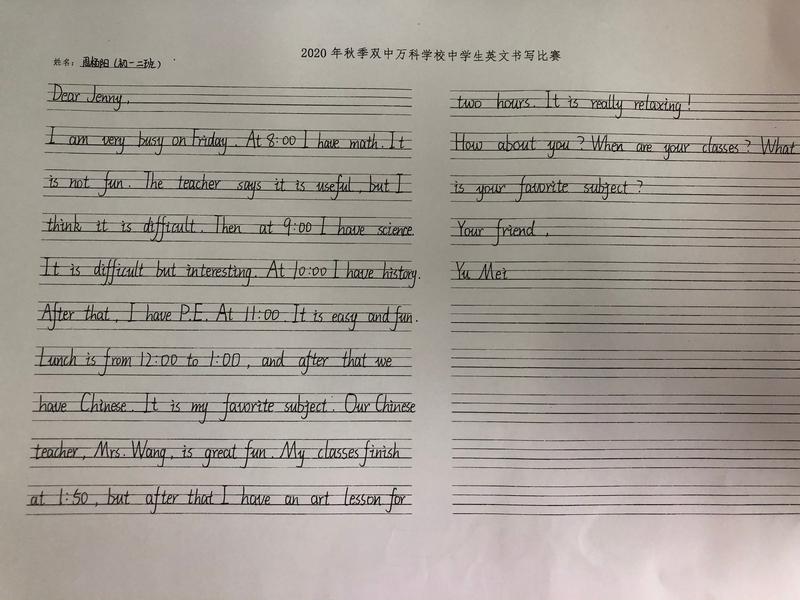 2020 年秋季双中万科学校中学生英文书写比赛
姓名：周杨阳（初一二班）
Dear Jenny,
I am very busy on Friday. At 8:00 I have math. It
is not fun. The teacher says it is useful, but I
think it is difficult. Then at 9:00 I have science.
It is difficult but interesting. At 10:00 I have history.
After that, I have P.E. At 11:00. It is easy and fun.
Lunch is from 12:00 to 1:00, and after that we
have Chinese. It is my favorite subject. Our Chinese
teacher, Mrs. Wang, is great fun. My classes finish
at 1:50, but after that I have an art lesson for
two hours. It is really relaxing!
How about you? When are your classes? What
is your favorite subject?
Your friend,
Yu Mei